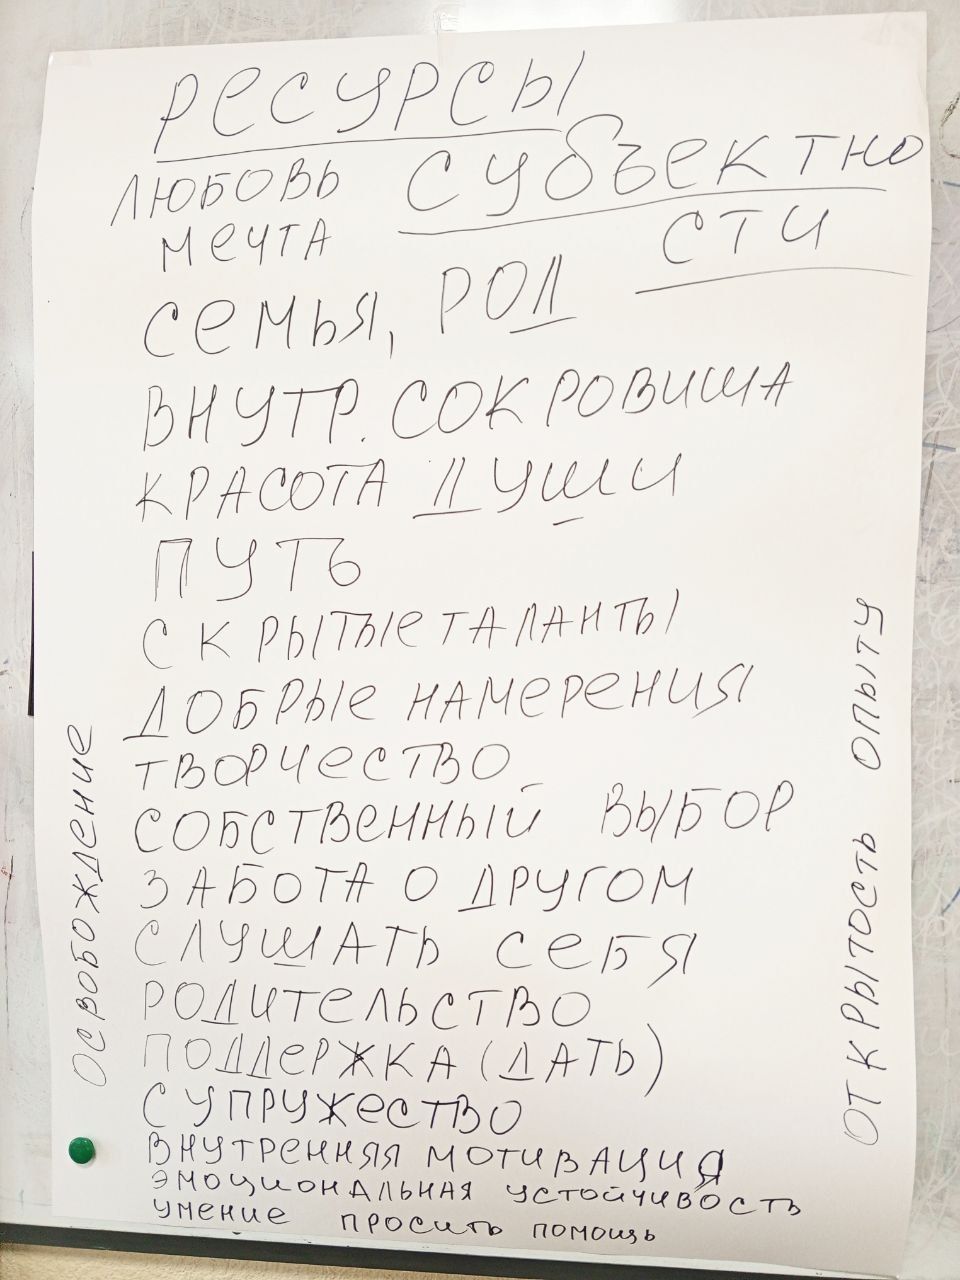 РЕСУРСЫ
СУБЪЕКТНО
СТИ
ЛЮБОВЬ
МЕЧТА
СЕМЬЯ, РОД
ВНУТР. СОКРОВИЩА
КРАСОТА ДУШИ
ПУТЬ
СКРЫТЫЕ ТАЛАНТЫ
ДОБРЫЕ НАМЕРЕНИЯ
ТВОРЧЕСТВО
СОБСТВЕННЫЙ ВЫБОР
ЗАБОТА О ДРУГОМ
СЛУШАТЬ СЕБЯ
РОДИТЕЛЬСТВО
ПОДДЕРЖКА (ДАТЬ)
СУПРУЖЕСТВО
ВНУТРЕННЯЯ МОТИВАЦИЯ
ЭМОЦИОНАЛЬНАЯ УСТОЙЧИВОСТЬ
УМЕНИЕ ПРОСИТЬ ПОМОЩЬ
ОСВОБОЖДЕНИЕ
ОТКРЫТОСТЬ ОПЫТУ